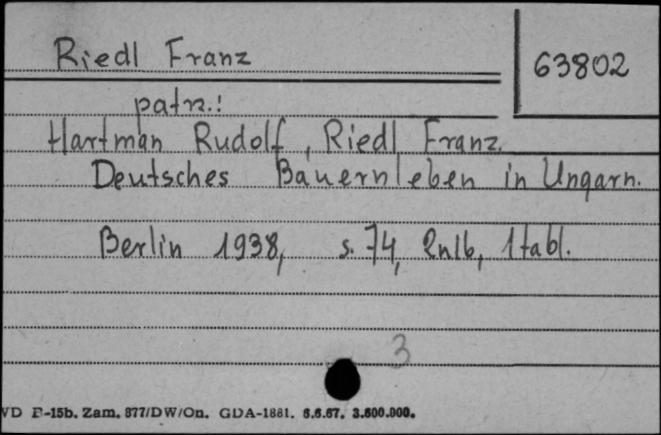 Riedl Franz
63802
patrz.:
Hartman Rudolf, Riedl Franz.
Deutsches Bauernleben in Ungarn.
Berlin 1938, s. 74, 2nlb, 1 tabl.
3
VD B-15b. Zam. 877/DW/On. GDA-1881. 6.6.67. 3.600.000.